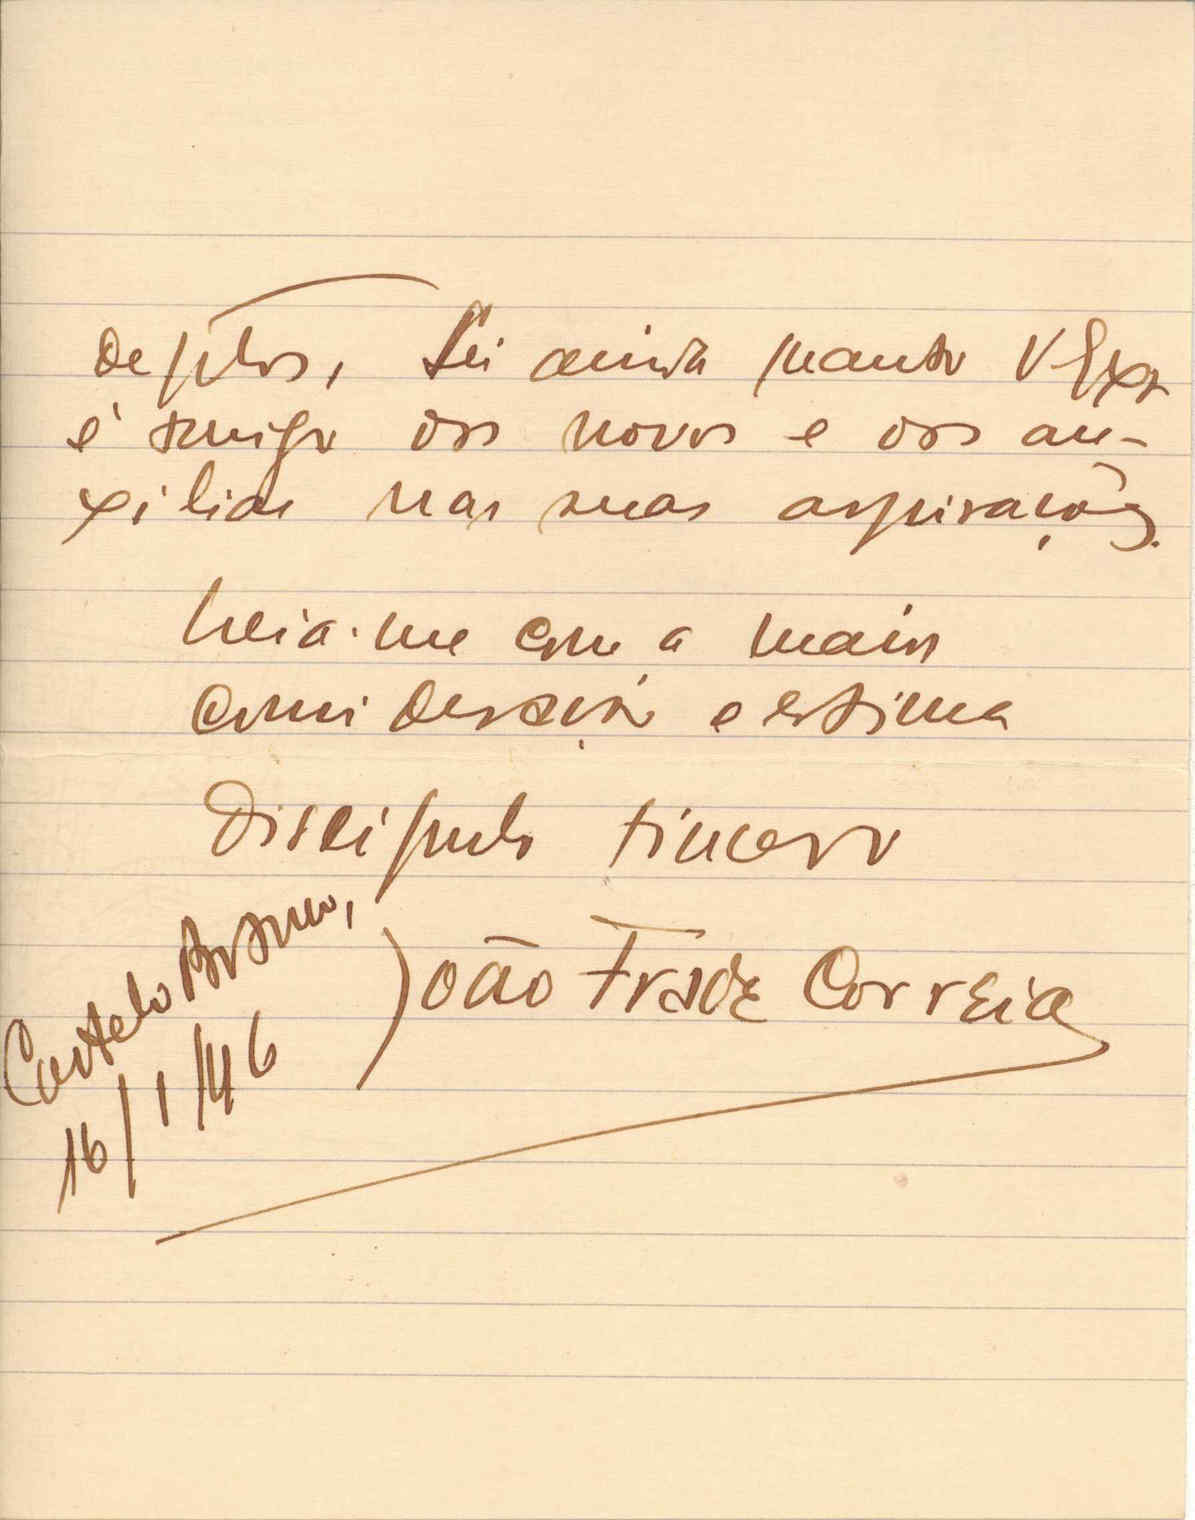 Sei ainda quanto V. Exª
é amigo dos novos e dos au-
xiliar nas suas aspirações.
Creia-me com a maior
consideração e estima
Discipulo sincero
João Frade Correia
Castelo Branco,
16/1/46